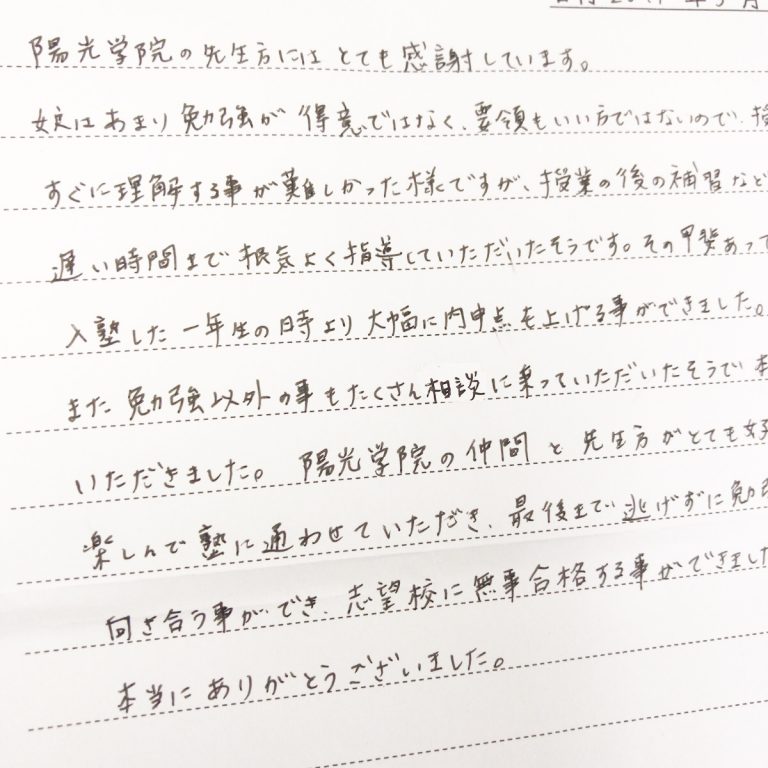 陽光学院の先生方にはとても感謝しています。
娘はあまり勉強が得意ではなく、要領もいい方ではないので、授
すぐに理解する事が難しかった様ですが、授業の後の補習など
遅い時間まで根気よく指導していただいたそうです。その甲斐あって
入塾した一年生の時より大幅に内申点も上げる事ができました。
また勉強以外の事もたくさん相談に乗っていただいたそうで本
いただきました。陽光学院の仲間と先生方がとても好
楽しんで塾に通わせていただき、最後まで逃げずに勉強
向き合う事ができ、志望校に無事合格する事ができました
本当にありがとうございました。